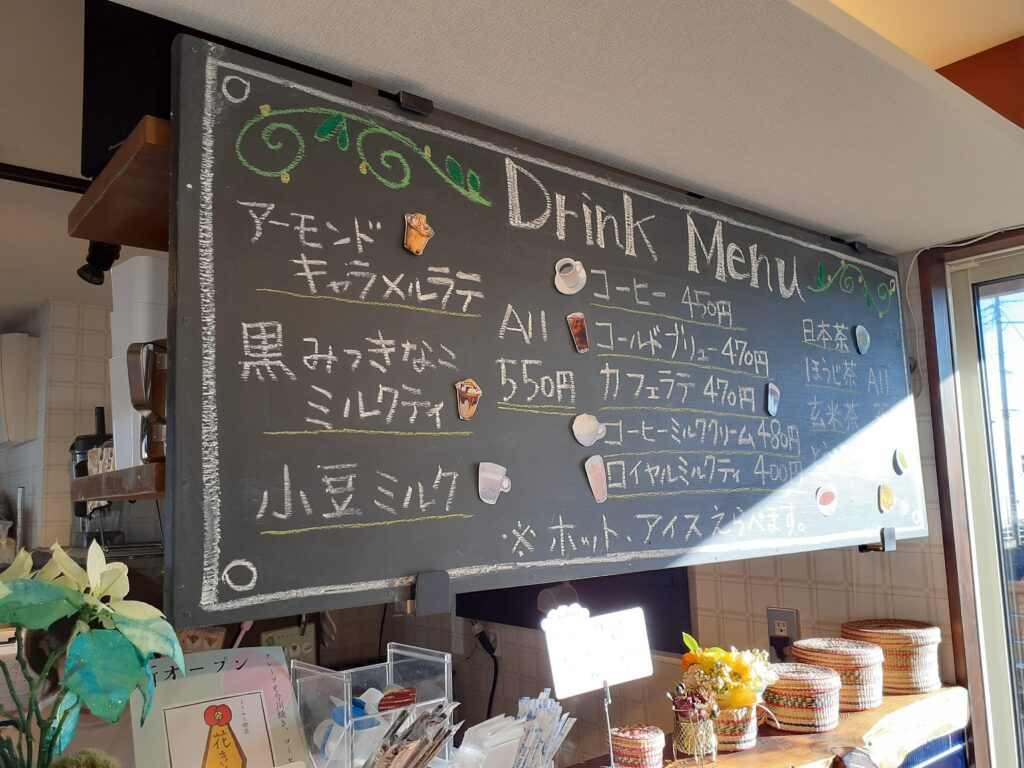 Drink Menu
アーモンド
キャラメルラテ
黒みつきなこ
ミルクティ
小豆ミルク
All
550円
コーヒー 450円
コールドブリュー 470円
カフェラテ 470円
コーヒーミルククリーム 480円
ロイヤルミルクティ 400円
※ホット、アイスえらべます。
日本茶
ほうじ茶 All
玄米茶
新オープン